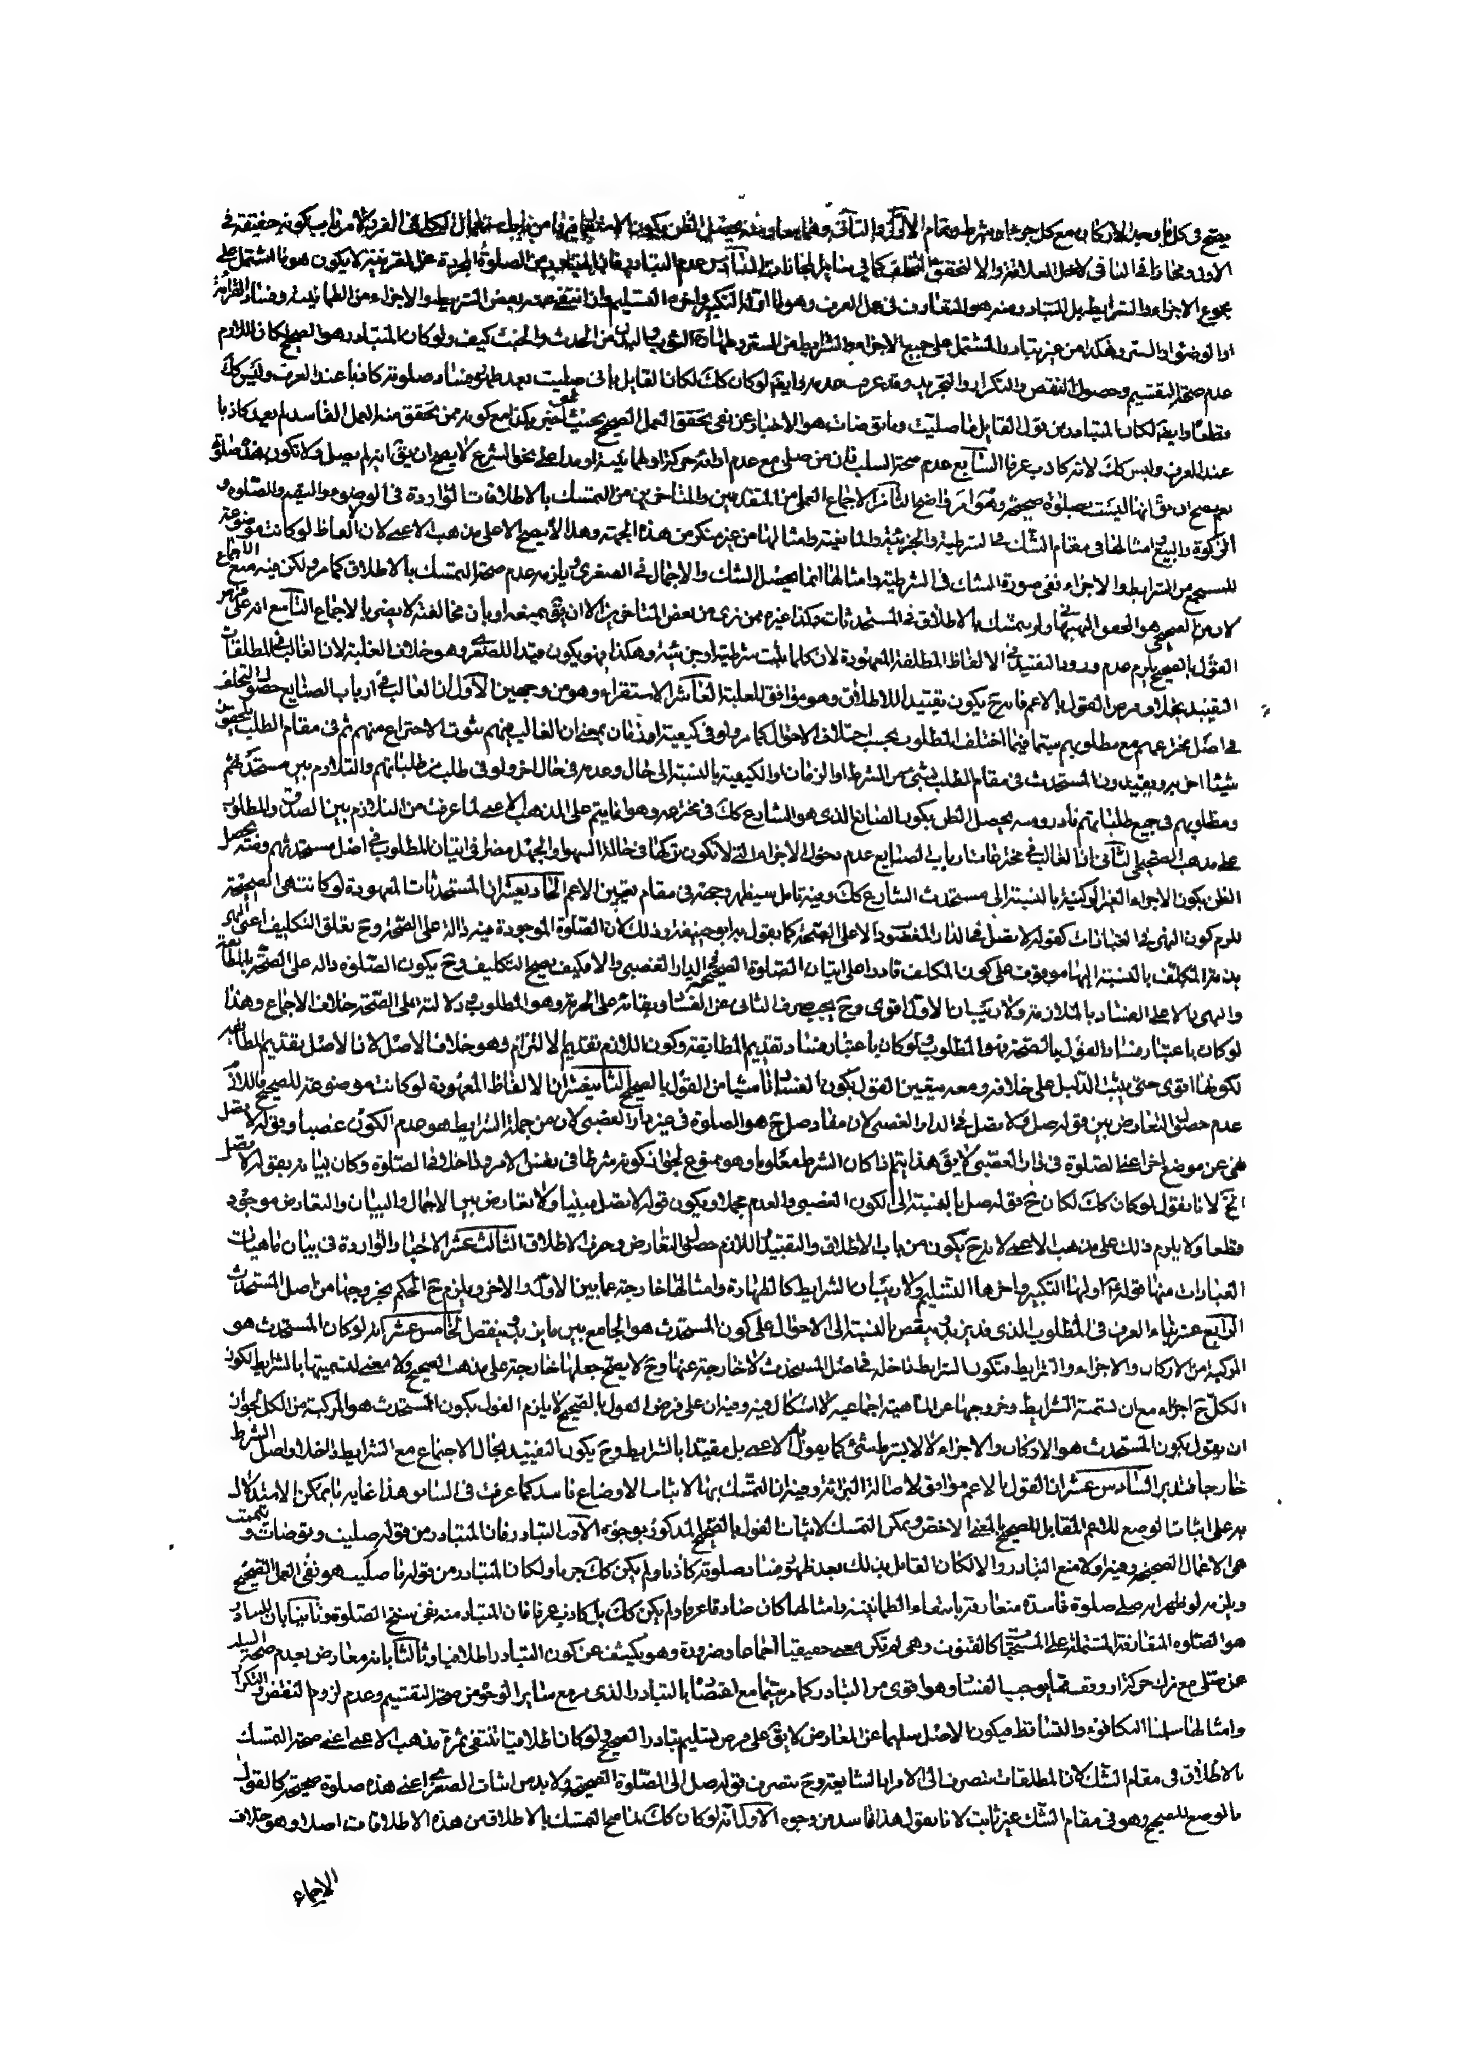 يصح في كل ما وجد الاركان مع كل جزء او شرط
الاول ومجازا في الثاني لاجل العلاقة والا لتحقق التخلف كما في ساير المجازات السادس عدم التبادر فان المتبادر من الصلوة المجردة عن القرينة لا يكون هو ما اشتمل على
مجموع الاجزاء والشرايط بل المتبادر منه هو المتعارف في اهل العرف وهو ما اوله التكبير واخره التسليم وان انتفى عنه بعض الشرايط والاجزاء من الطمانينة وفساد القرائة
او الوضوء او الستر وهكذا من غير تبادر المشتمل على جميع الاجزاء والشرايط من الستر وطهارة الثوب والبدن من الحدث والخبث كيف ولو كان المتبادر هو الصحيح لكان اللازم
عدم صحة التقسيم وحصول النقض والتكرار والتجريد وقد عرفت عدمه وايضا لو كان كك لكان القايل باني صليت بعد ظهور فساد صلوته كاذبا عند العرف وليس كك
قطعا وايضا لكان المتبادر من قول القايل ما صليت وما توضات هو الاخبار عن نفي تحقق العمل الصحيح بحيث مع كونه ممن تحقق منه العمل الفاسد لم يعد كاذبا
عند العرف وليس كك لانه كاذب عرفا السابع عدم صحة السلب فان من صلى مع عدم اداء حركة او طمانينة او مد على نحو الشرع لا يصح ان يق انه لم يصل ولا تكون هذه صلوة
نعم يصح ان يق انها ليست بصلوة صحيحة وهو امر واضح الثامن الاجماع العملي من المتقدمين والمتاخرين من التمسك بالاطلاقات الواردة في الوضوء والتيمم والصلوة و
الزكوة والبيع وامثالها في مقام الشك في الشرطية والجزئية والمانعية وامثالها من غير منكر من هذه الجهة وهذا لا يصح الا على مذهب الاعمى لان الفاظ لو كانت موضوعة
للمستجمع من الشرايط والاجزاء ففي صورة الشك في الشرطية وامثالها انما يحصل الشك والاجمال في الصغرى ويلزمه عدم صحة التمسك بالاطلاق كما مر ولكن فيه منع الاجماع
لان من الصحيحي هو المحقق البهبهاني ولم يتمسك بالاطلاق في المستحدثات وكذا غيره ممن نرى من بعض المتاخرين الا ان يق بمنعه او بان مخالفته لا يضر بالاجماع التاسع انه على
القول بالصحيح يلزم عدم ورود التقييد في الالفاظ المطلقة المعهودة لان كلما يثبت شرطيته او جزئيته وهكذا فهو يكون مقيدا للصغرى وهو خلاف الغلبة لان الغالب في المطلقات
التقييد بخلاف فرض القول بالاعم فانه ح يكون تقييدا للاطلاق وهو موافق للغلبة العاشر الاستقراء وهو من وجهين الاول ان الغالب في ارباب الصنايع حصول التخلف
في اصل مخترعهم مع مطلوبهم سيما فيما اختلف المطلوب بحسب اختلاف الاحوال كما مر ولو في كيفية او زمان بمعنى ان الغالب منهم ثبوت الاختراع منهم ثم في مقام الطلب يلحقون
شيئا اخر به ويقيدون المستحدث في مقام الطلب بشيء من الشرط او الزمان او الكيفية بالنسبة الى حال وعدمه في حال اخر ولو في طلب من طلباتهم والتلازم بين مستحدثهم
ومطلوبهم في جميع طلباتهم نادر ومنه يحصل الظن بكون الصانع الذي هو الشارع كك في مخترعه وهو انما يتم على المذهب الاعمى لما عرفت من التلازم بين الصادق والمطلوب
على مذهب الصحيحي الثاني ان الغالب في مخترعات ارباب الصنايع عدم دخول الاجزاء التي لا تكون تركها في حالة السهو او الجهل مضرا في اتيان المطلوب في اصل مستحدثهم ومنه يحصل
الظن بكون الاجزاء الغير الركنية بالنسبة الى مستحدث الشارع كك وفيه تامل سيظهر وجهه في مقام تعيين الاعم الحاديعشر ان المستحدثات المعهودة لو كانت هي الصحيحة
للزم كون النهي في العبادات كقوله لا تصل في الدار المغصوبة دالا على الصحة كما يقول به ابو حنيفة وذلك لان الصلوة الموجودة فيه دالة على الصحة وح تعلق التكليف اعني النهي
بذمة المكلف بالنسبة اليها موقوف على كون المكلف قادرا على اتيان الصلوة الصحيحة في الدار الغصبي والا فكيف يصح التكليف وح يكون الصلوة داله على الصحة بالمطابقة
والنهي دالا على الفساد بالملازمة ولا ريب ان الاول اقوى وح يجب صرف الثاني عن الفساد وبقائه على الحرمة وهو المطلوب ودلالته على الصحة خلاف الاجماع وهذا
لو كان باعتبار فساد القول بالصحة فهو المطلوب ولو كان باعتبار فساد تقديم المطابقة وكون اللازم تقديم الالتزام وهو خلاف الاصل لان الاصل تقديم المطابقة
لكونها اقوى حتى يثبت الدليل على خلافه ومعه يتعين القول بكون الفساد ناشيا من القول بالصحيح الثانيعشر ان الالفاظ المعهودة لو كانت موضوعة للصحيح فاللازم
عدم حصول التعارض بين قوله صل ولا تصل في الدار الغصبي لان مفاد صل ح هو الصلوة في غير دار الغصبي لان من جملة الشرايط هو عدم الكون غصبا وقوله لا تصل
نهي عن موضع اخر اعني الصلوة في دار الغصبي لا يق هذا يتم اذا كان الشرط معلوما وهو ممنوع لجواز ان كونه شرطا في نفس الامر وداخلا في الصلوة وكان بيانه بقوله لا تصل
الخ لانا نقول لو كان كك لكان ح قوله صل بالنسبة الى الكون الغصبي والعدم مجملا ويكون قوله لا تصل مبينا ولا تعارض بين الاجمال والبيان والتعارض موجود
قطعا ولا يلزم ذلك على مذهب الاعمى لانه ح يكون من باب الاطلاق والتقييد اللازم حصول التعارض وحرف الاطلاق الثالث عشر الاخبار الواردة في بيان ماهيات
العبارات منها قوله ع اولها التكبير واخرها التسليم ولا ريب ان الشرايط كالطهارة وامثالها خارجة عما بين الاول والاخر ويلزم ح الحكم بخروجها من اصل المستحدث
الرابع عشر بناء العرف في المطلوب الذي قد يزيد وينقص بالنسبة الى الاحوال على كون المستحدث هو الجامع بين ما يزيد وينقص الخامس عشر انه لو كان المستحدث هو
المركب من الاركان والاجزاء والشرايط فتكون الشرايط داخلة في اصل المستحدث لا خارجة عنها وح لا يصح جعلها خارجة على مذهب الصحيح ولا معنى لتسميتها بالشرايط لكون
الكل ح اجزاء مع ان تسمية الشرايط وخروجها عن الماهية اجماعية لا اشكال فيه وفيه ان على فرض القول بالصحيح لا يلزم القول بكون المستحدث هو المركبة من الكل لجواز
ان يقول بكون المستحدث هو الاركان والاجزاء لا لا بشرط شئ كما يقول به الاعمى بل مقيدا بالشرايط وح يكون التقييد بحال الاجتماع مع الشرايط داخلا واصل الشرط
خارجا فتدبر السادس عشر ان القول بالاعم موافق لاصالة البرائة وفيه ان التمسك بها لاثبات الاوضاع فاسد كما عرفت في السابق هذا غاية ما يمكن الاستدلال
به على اثبات الوضع للاعم المقابل للصحيح بالمعنى الاخص ويمكن التمسك لاثبات القول بالصحيح المذكور بوجوه الاول التبادر فان المتبادر من قوله صليت وتوضات وتيممت
هي الاعمال الصحيحة وفيه اولا منع التبادر والا لكان القايل بذلك بعد ظهور فساد صلوته كاذبا ولم يكن كك جزما ولكان المتبادر من قوله ما صليت هو نفي العمل الصحيح
ويلزمه لو ظهر انه صلى صلوة فاسدة متعارفة بانتفاء الطمانينة وامثالها كان صادقا عرفا ولم يكن كك بل كاذب عرفا فان المتبادر منه نفي سنخ الصلوة وثانيا بان المتبادر
هو الصلوة المتعارفة المشتملة على المستحبات كالقنوت وهي لم تكن معنى حقيقيا اجماعا وضرورة وهو يكشف عن كون التبادر اطلاقيا وثالثا بانه معارض بعدم صحة السلب
عن مثل مع ترك حركة او وقف مما يوجب الفساد وهو اقوى من التبادر كما مر سيما مع اعتضاده بالتبادر الذي مر مع ساير الوجوه من صحة التقسيم وعدم لزوم النقض والتكرار
وامثالها سلمنا التكافوء والتساقط فيكون الاصل سليما عن المعارض لا يق على فرض تسليم تبادر الصحيح ولو كان اطلاقيا تنتفي ثمرة مذهب الاعمى اعني صحة التمسك
بالاطلاق في مقام الشك لان المطلقات تنصرف الى الافراد الشايعة وح ينصرف قوله صل الى الصلوة الصحيحة ولا بد من اثبات الصغرى اعني هذه صلوة صحيحة كالقول
بالوضع للصحيح وهو في مقام الشك غير ثابت لانا نقول هذا فاسد من وجوه الاول انه لو كان كك لما صح التمسك بالاطلاق من هذه الاطلاقات اصلا وهو خلاف
الاجماع